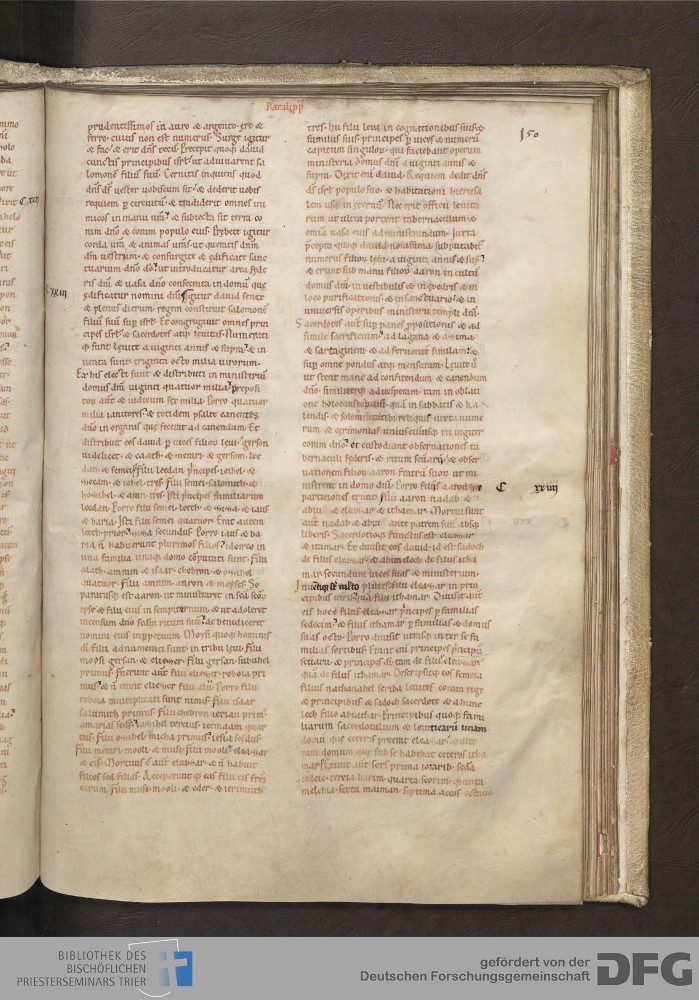 Paralipp̄
prudentissimos in auro & argento & ęre &
ferro cuius non est numerus. Surge igitur
& fac & erit dn̄s tecū. Precepit quoq; dauid
cunctis principibus isrl̄ ut adiuuarent sa
lomonē filiū suū. Cernitis inquiens quod
dn̄s ds̄ uester uobiscum sit & dederit uobis
requiem p circuitū & tradiderit omnes ini
micos in manu ur̄a & subiecta sit terra co
ram dn̄o & coram populo eius. Prebete igitur
corda ur̄a & animas ur̄as ut queratis dn̄m
dm̄ uestrum & consurgite & ędificate sanc
tuarium dn̄o dō ut introducatur arca
ris dn̄i & uasa dn̄o consecrata in domū quę
ędificatur nomini dn̄i. Igitur dauid senex
& plenus dierum regem constituit salomonē
filiū suū sup isrl̄. Et congregauit omnes prin
cipes isrl̄ & sacerdotes atq; leuitas. Numerati
q; sunt leuitę a uiginti annis & supra & in
uenta sunt triginta octo milia uirorum.
Ex his electi sunt & distributi in ministeriū
domus dn̄i uiginti quatuor milia. Preposi
torū aut̄ & iudicum sex milia. Porro quatuor
milia ianitores & totidem psalte canentes
dn̄o in organis quę fecerat ad canendum. Et
distribuit eos dauid p uices filiorū leui. gerson
uidelicet & caath & merari & gerson. leo
dan & semei. Filii leedan principes iethel &
zethan & iohel tres. Filii semei salomith &
hosihel & aran tres. Isti principes familiarum
leedan. Porro filii semei leeth & ziza & iaus
& baria. Isti filii semei quatuor. Erat autem
leeth prior ziza secundus. Porro iaus & ba
ria n̄ habuerunt plurimos filios & idcirco in
una familia unaq; domo cōputati sunt. Filii
caath amram & isaar chebron & ozihel
quatuor. Filii amram aaron & moyses. Se
paratusq; est aaron ut ministraret in sc̄a sc̄orū
ipse & filii eius in sempiternum & ut adoleret
incensum dn̄o scdm ritum suū ac benediceret
nomini eius inppetuum. Moysi quoq; hominis
di filii adnumerati sunt in tribu leui. Filii
moysi gersan & eliezer. Filii gersan subuhel
primus. Fuerunt aut̄ filii eliezer rohoia pri
mus & n̄ erant eliezer filii alii. Porro filii
rohoia multiplicati sunt nimis. Filii isaar
salumith primus. Filii chebron ieriau prim
amarias scds iaazihel tercius iecmaam quar
tus. Filii ozihel micha primus iesia scdus.
Filii merari mooli & musi. Filii mooli eleazar
& cis. Mortuus ē aut̄ eleazar & n̄ habuit
filios sed filias. Acceperunt q; eas filii cis frēs
earum. Filii musi mooli & eder & ierimuth
tres. hii filii leui in cognationibus suis &
familiis suis principes p uices & numerū
capitum singulorū qui faciebant operum
ministerii domus dn̄i a uiginti annis &
supra. Dixit enī dauid. Requiem dedit dn̄s
ds̄ isrl̄ populo suo & habitationē hierusa
lem usq; in ęternū. Nec erit officii leuita
rum ut ultra portent tabernaculum &
omia uasa eius administrandum. Iuxta
p̄cepta quoq; dauid nouissima supputabitur
numerus filiorū leui a uiginti annis & sup̄
& erunt sub manu filiorū aaron in cultū
domus dn̄i in uestibulis & in exedris & in
loco purificationis & in sanctuario & in
uniuersis operibus ministerii templi dn̄i.
Sacerdotes aut̄ sup panes propositionis & ad
simile sacrificium & ad lagana & azima
& sartaginem & ad feruentē similam &
sup omne pondus atq; mensuram. Leuitę ū
ut stent mane ad confitendum & canendum
dn̄o similiterq; ad uesperam tam in oblati
one holocaustorū dn̄i quā in sabbatis & ka
lendis & solemnitatibus reliquis iuxta nume
rum & cerimonias uniuscuiusq; rei iugiter
coram dn̄o & custodiant obseruationes ta
bernaculi fęderis & ritum sc̄uarii & obser
uationem filiorū aaron fratrū suorū ut mi
nistrent in domo dn̄i. Porro filiis aaron hę
partitiones erunt. Filii aaron nadab &
abiu & eleazar & ithamar. Mortui sunt
aut̄ nadab & abiu ante patrem suū absq;
liberis. Sacerdotioq; functus est eleazar
& itamar. Et diuisit eos dauid id est sadoch
de filiis eleazar & ahimelech de filiis itha
mar secundum uices suas & ministerium.
Inuētiq; sē multo plures filii eleazar in prin
cipibus uiris quā filii ithamar. Diuisit aut̄
eis hoc ē filiis eleazar p̄ncipes p familias
sedecim & filiis ithamar p familias & domus
suas octo. Porro diuisit utrasq; inter se fa
milias sortibus. Erant enī principes
sc̄uarii & principes di tam de filiis eleazar
quā de filiis ithamar. Descripsitq; eos semeia
filius nathanahel scriba leuites coram rege
& principibus & sadoch sacerdote & ahime
lech filio abiathar. Principibus quoq; fami
liarum sacerdotalium & leuiticarū unam
domū quę ceteris preerat eleazar & alte
ram domum quę sub se habebat ceteros itha
mar. Exiuit aut̄ sors prima ioiarib. scda
iedeie. tercia harim. quarta seorim. quinta
melchia. sexta maiman. septima accos. octaua
150
C xxiii
C xxiiii
BIBLIOTHEK DES
BISCHÖFLICHEN
PRIESTERSEMINARS TRIER
gefördert von der
Deutschen Forschungsgemeinschaft
DFG